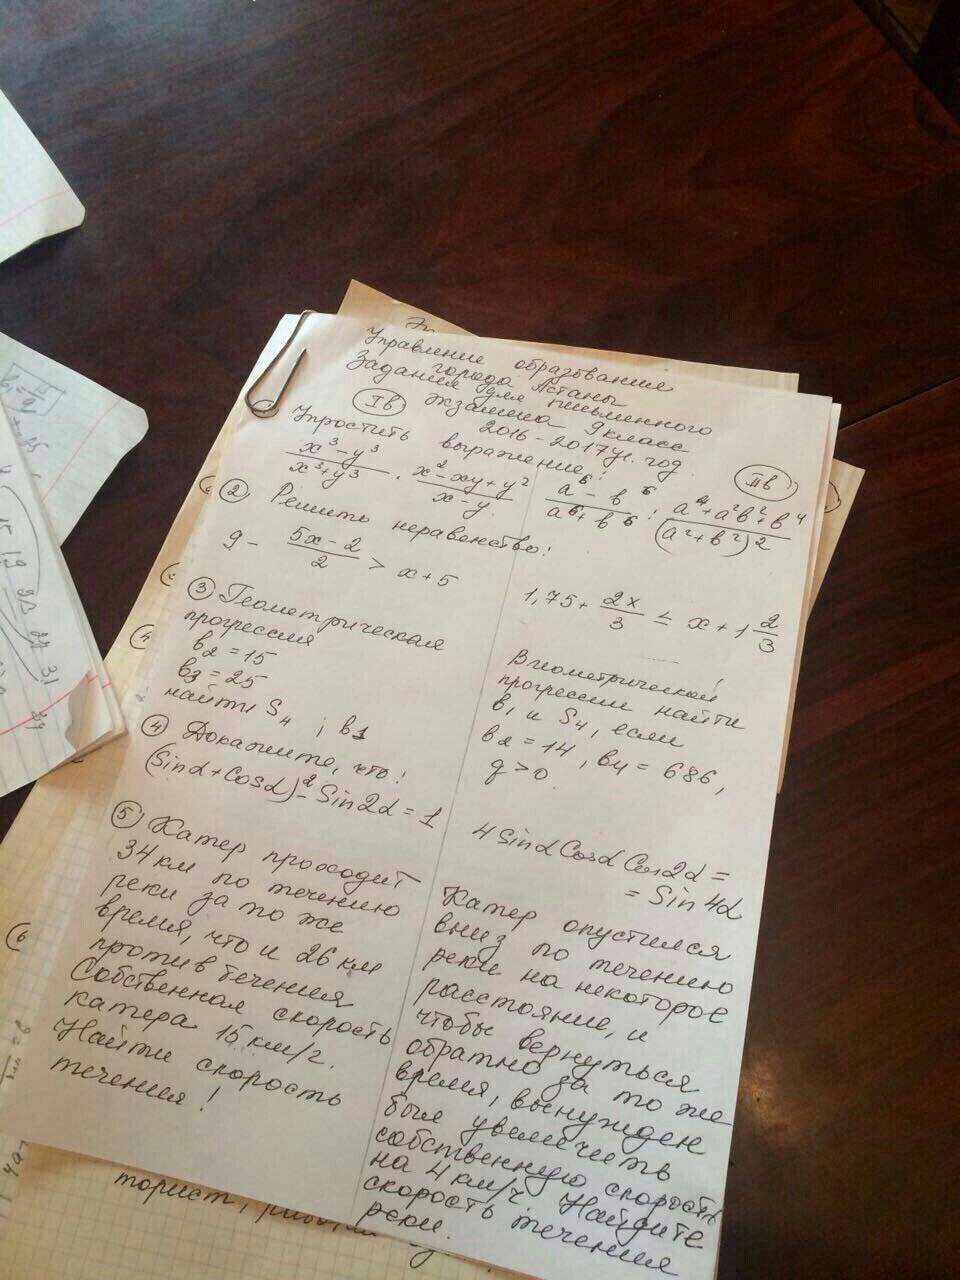 Управление образования
города Астаны
Задания для письменного
экзамена 9 класс
2016-2017 уч. год.
Iв
Упростить выражение:
x³-y³/x³+y³ · x²-xy+y²/x-y
② Решить неравенство:
9 - 5x-2/2 > x+5
③ Геометрическая
прогрессия
в2=15
в3=25
найти S4 ; в1
④ Докажите, что!
(Sinα+Cosα)²-Sin2α=1
⑤ Катер проходит
34 км по течению
реки за то же
время, что и 26 км
против течения
Собственная скорость
катера 15 км/г.
Найти скорость
течения!
IIв
a⁶-b⁶/a⁶+b⁶ : a⁴+a²b²+b⁴/(a²+b²)²
1,75+ 2x/3 ≤ x+1 2/3
В геометрической
прогрессии найти
в1 и S4, если
в2=14, в4=686,
q>0
4SinαCosαCos2α=
=Sin4α
Катер опустился
вниз по течению
реки на некоторое
расстояние, и
чтобы вернуться
обратно за то же
время, вынужден
был увеличить
собственную скорость
на 4 км/ч. Найдите
скорость течения
реки.
④
⑥
торист,